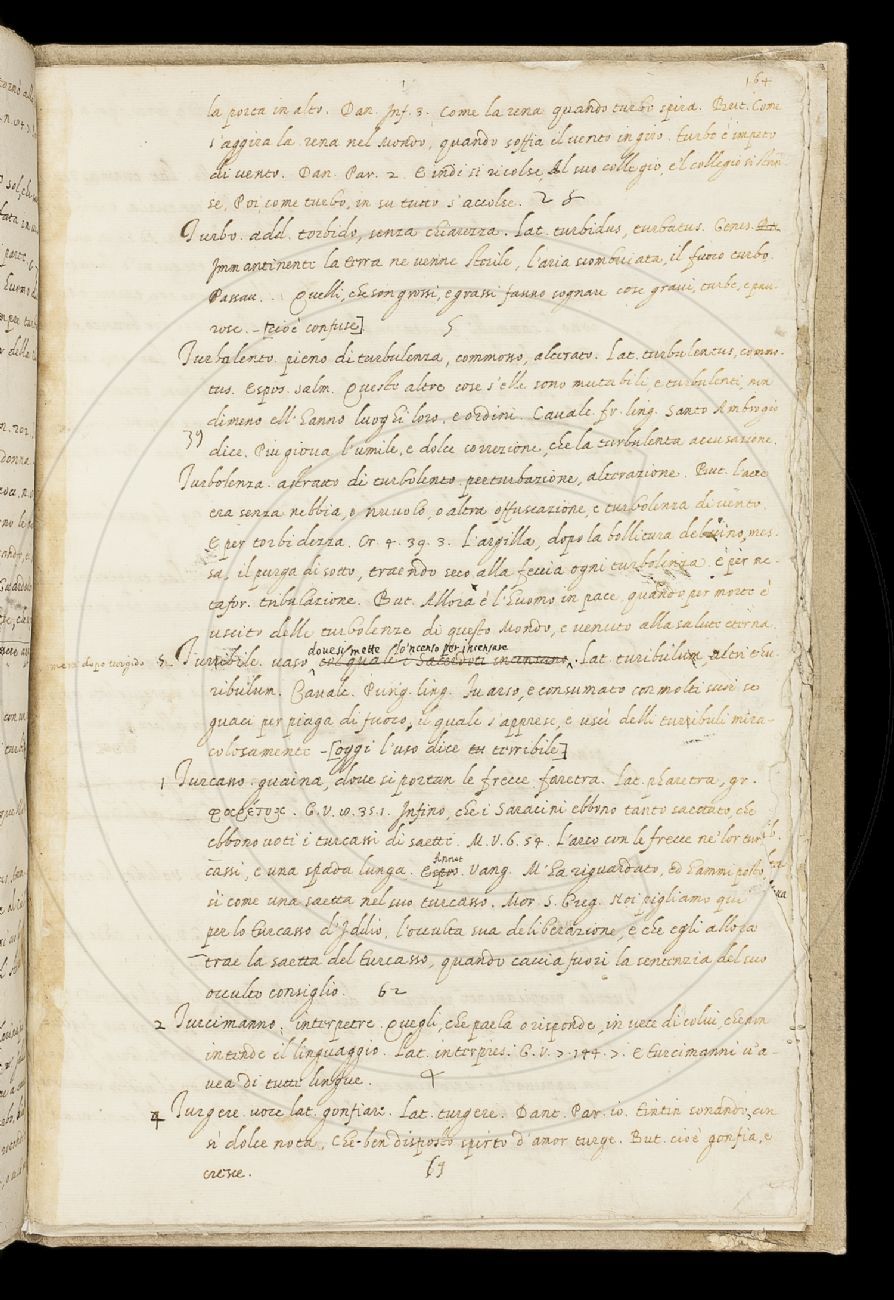 164
la porta in alto. Dan. Inf. 3. Come la rena quando turbo spira. But. Come
s'aggira la rena nel Mondo, quando soffia il vento in giro. turbo è impeto
di vento. Dan. Par. 2. E indi si ricolse, Al suo collegio, e'l collegio si strin-
se, Poi, come turbo, in su tutto s'accolse. 28
Turbo. add. torbido, senza chiarezza. Lat. turbidus, turbatus. Genes.
Immantinente la terra ne venne sterile, l'aria scombuiata, il fuoco turbo.
Passav. Quelli, che son grossi, e grassi fanno sognare cose gravi, turbe, e pau-
rose. - [cioè confuse] 5
Turbolento. pieno di turbulenza, commosso, alterato. Lat. turbulentus, commo-
tus. Espos. Salm. Questo altre cose s'elle sono mutabili, e turbulenti, non
dimeno ell'hanno luoghi loro, e ordini. Cavalc. fr. ling. Santo Ambrogio
39
dice. Piu giova l'umile, e dolce correzione, che la turbulenta accusazione.
Turbolenza. astratto di turbolento. perturbazione, alterazione. But. l'aere
era senza nebbia, o nuvolo, o altra offuscazione, e turbolenza di vento.
E per torbidezza. Cr. 4. 39. 3. L'argilla, dopo la bollitura del vino, mes-
sa, il purga di sotto, traendo seco alla feccia ogni turbolenza. E per me-
tafor. tribulazione. But. Allora è l'huomo in pace, quando per morte è
uscito delle turbolenze di questo Mondo, e venuto alla salute eterna.
dove si mette lo 'ncenso per incensare
dopo turgido 5 Turribile. vaso col quale i Sacerdoti incensano. Lat. turibulum, altri thu-
ribulum. Cavalc. Pung. ling. Fu arso, e consumato con molti suoi se
guaci per piaga di fuoco, il quale s'apprese, e uscì delli turribuli mira-
colosamente - [oggi l'uso dice terribile]
1 Turcasso. guaina, dove si portan le frecce. faretra. Lat. pharetra, gr.
φαρέτρα. G. V. 10. 35. 1. Infino, che i Saracini ebbono tanto saettato, che
ebbono voti i turcassi di saette. M. V. 6. 54. L'arco con le frecce ne' lor tur-
Annot
cassi, e una spada lunga. Espos. Vang. M'ha riguardato, ed hammi posto,
sì come una saetta nel suo turcasso. Mor. S. Greg. Noi pigliamo qui
per lo turcasso d'Iddio, l'occulta sua deliberazione, e che egli allora
trae la saetta del turcasso, quando caccia fuori la sentenzia del suo
occulto consiglio. 62
2 Turcimanno. interpetre. Quegli, che parla o risponde, in vece di colui, che non
intende il linguaggio. Lat. interpres. G. V. 7. 144. 7. E turcimanni v'a-
vea di tutte lingue. 4
4 Turgere. voce lat. gonfiare. Lat. turgere. Dant. Par. 10. tintin sonando, con
sì dolce nota, Che ben disposto spirto d'amor turge. But. cioè gonfia, e
cresce.